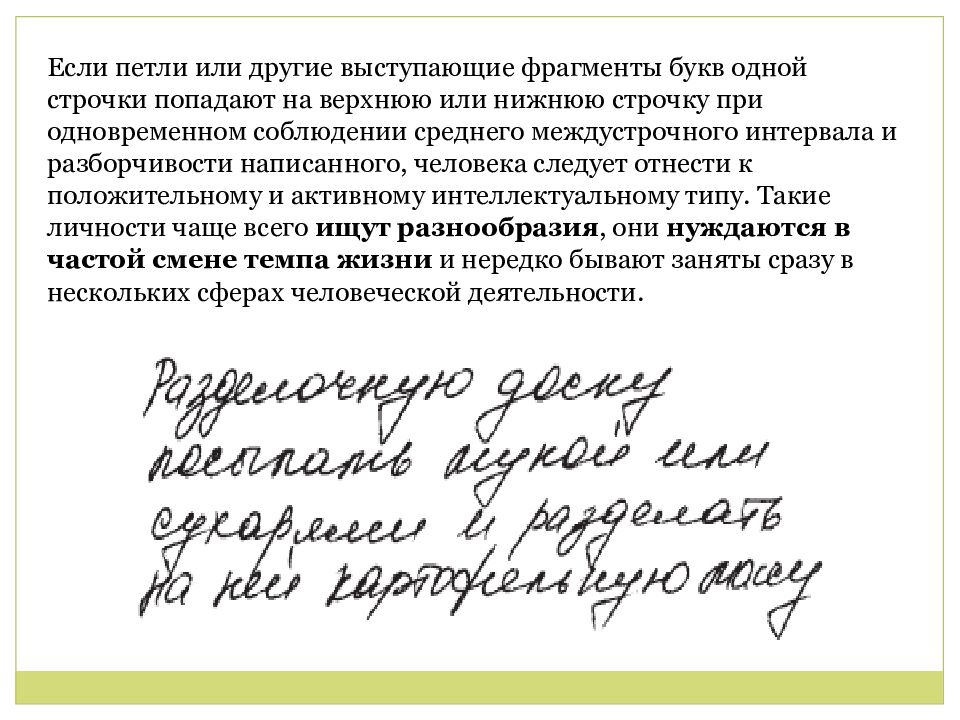 Если петли или другие выступающие фрагменты букв одной
строчки попадают на верхнюю или нижнюю строчку при
одновременном соблюдении среднего междустрочного интервала и
разборчивости написанного, человека следует отнести к
положительному и активному интеллектуальному типу. Такие
личности чаще всего ищут разнообразия, они нуждаются в
частой смене темпа жизни и нередко бывают заняты сразу в
нескольких сферах человеческой деятельности.
Разделочную доску
посыпать мукой или
сухарями и разделать
на ней картофельную массу